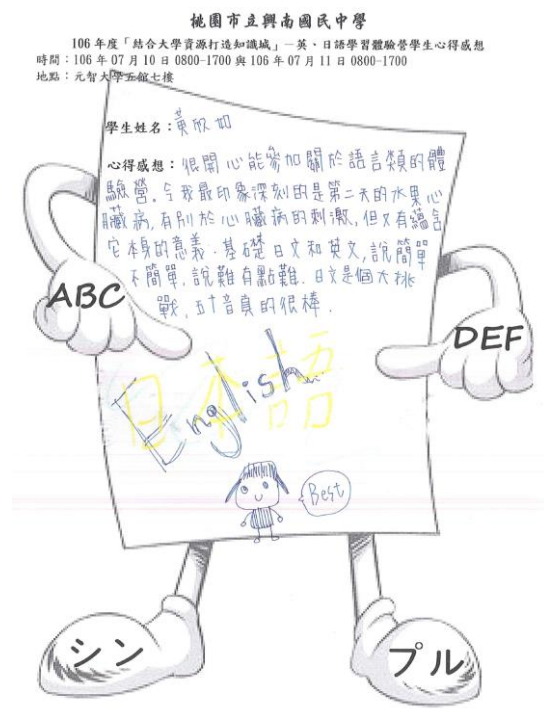 桃園市立興南國民中學
106 年度「結合大學資源打造知識城」–英、日語學習體驗營學生心得感想
時間：106 年 07 月 10 日 0800-1700 與 106 年 07 月 11 日 0800-1700
地點：元智大學五館七樓
學生姓名：黃欣如
心得感想：很開心能參加關於語言類的體
驗營。令我最印象深刻的是第二天的水果心
臟病,有別於心臟病的刺激,但又有蘊含
它本身的意義.基礎日文和英文,說簡單
不簡單,說難有點難.日文是個大挑
戰,五十音真的很棒.
ABC
DEF
日本語
English
Best
シン
プル